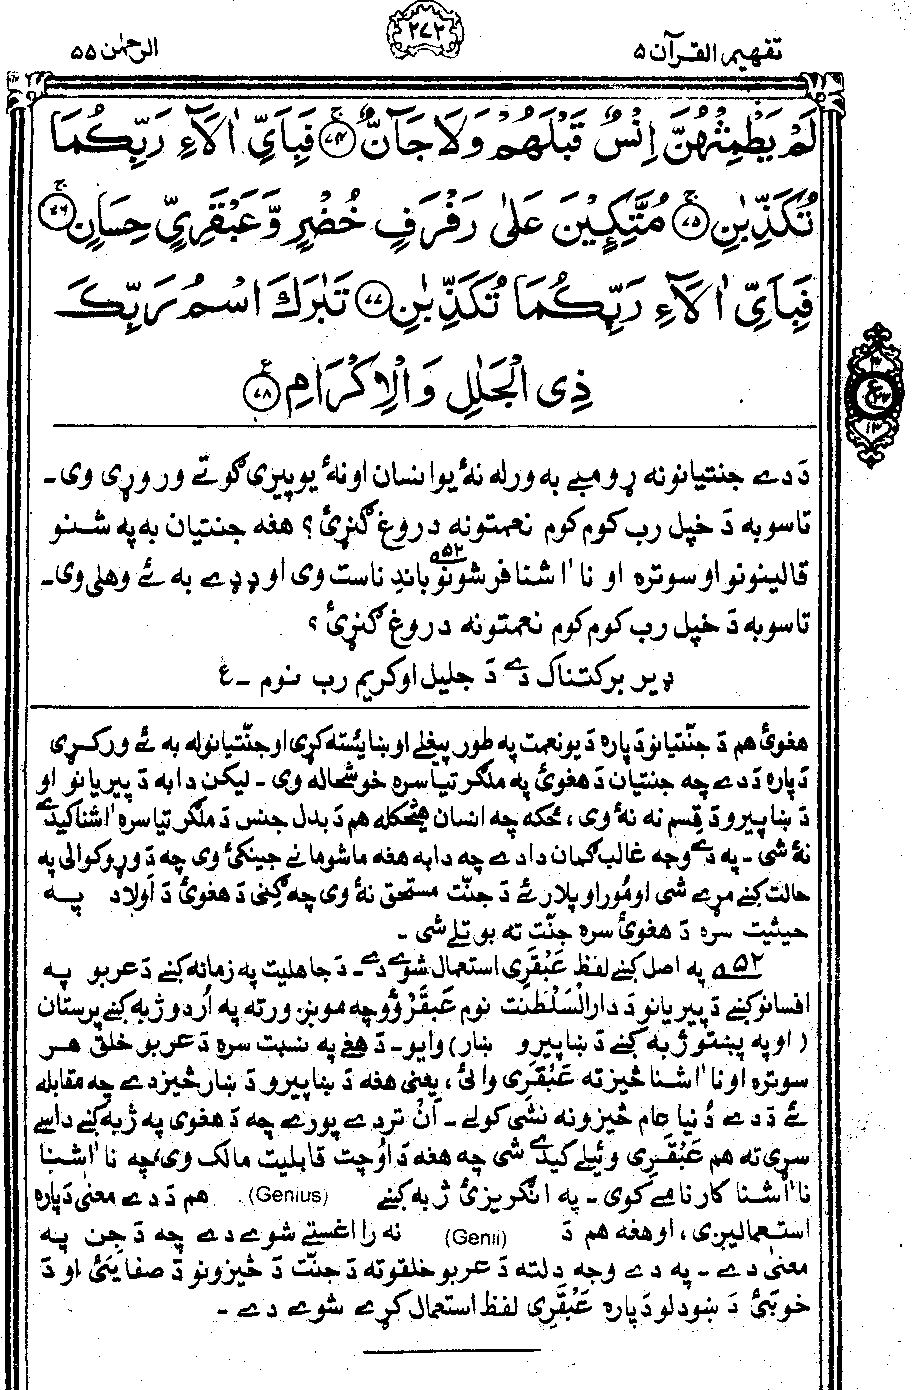 تفهيم القرآن ۵
۲۷۲
الرحمٰن ۵۵
لَمْ يَطْمِثْهُنَّ اِنْسٌ قَبْلَهُمْ وَلَا جَآنٌّ ۚ﴿۷۴﴾ فَبِاَيِّ اٰلَآءِ رَبِّكُمَا
تُكَذِّبٰنِ ۚ﴿۷۵﴾ مُتَّكِـِٕيْنَ عَلٰى رَفْرَفٍ خُضْرٍ وَّعَبْقَرِيٍّ حِسَانٍ ۚ﴿۷۶﴾
فَبِاَيِّ اٰلَآءِ رَبِّكُمَا تُكَذِّبٰنِ ﴿۷۷﴾ تَبٰرَكَ اسْمُ رَبِّكَ
ذِى الْجَلٰلِ وَالْاِكْرَامِ ﴿۷۸﴾ ع
دَ دے جنتيانو نه ړومبے به ورله نۀ يو انسان او نۀ يو پيرى ګوتے وروړى وى۔
تاسو به دَ خپل رب کوم کوم نعمتونه دروغ ګنړئ؟ هغه جنتيان به په شنو
قالينونو او سوتره او نا اٰشنا فرشونو ۵۲ باندِ ناست وى او ډډے به ئے وهلى وى۔
تاسو به دَ خپل رب کوم کوم نعمتونه دروغ ګنړئ؟
ډير برکتناک دے دَ جليل او کريم رب نوم ۔ ع
هغوئ هم دَ جنّتيانو دَ پاره دَ يو نعمت په طور پيغلے او ښائسته کړى او جنّتيانو له به ئے ورکړى
دَ پاره دَ دے چه جنتيان دَ هغوئ په ملګرتيا سره خوشحاله وى ۔ ليکن دا به دَ پيريانو او
دَ ښاپيرو دَ قِسم نه نۀ وى، ځکه چه انسان هيڅکله هم دَ بدل جنس دَ ملګرتيا سره اٰشنا کيدے
نۀ شى ۔ په دے وجه غالب ګمان دا دے چه دا به هغه ماشومانے جينکئ وى چه دَ وړوکوالى په
حالت کښے مرے شى او مُور او پلار ئے دَ جنّت مستحق نۀ وى چه ګنى دَ هغوئ دَ اولاد په
حيثيت سره دَ هغوئ سره جنّت ته بوتلے شى ۔
۵۲ په اصل کښے لفظ عَبْقَرِى استعمال شوے دے ۔ دَ جاهليت په زمانه کښے دَ عربو په
افسانو کښے دَ پيريانو دَ دارالسَّلطنت نوم عَبقَرْ ؤو چه مونږ ورته په اُردو ژبه کښے پرستان
(او په پښتو ژبه کښے دَ ښاپيرو ښار) وايو ۔ دَ هغے په نسبت سره دَ عربو خلق هر
سوتره او نا اٰشنا څيز ته عَبْقَرِى وائى، يعنى هغه دَ ښاپيرو دَ ښار څيز دے چه مقابله
ئے دَ دے دُنيا عام څيزونه نشى کولے ۔ اَن تر دے پورے چه دَ هغوى په ژبه کښے داسے
سړى ته هم عَبْقَرِى وئيلے کيدے شى چه هغه دَ اُوچت قابليت مالک وى، چه نا اٰشنا
نا اٰشنا کارنامے کوى ۔ په انګريزئ ژبه کښے (Genius) هم دَ دے معنىٰ دَ پاره
استعماليږى، او هغه هم دَ (Genii) نه را اغستے شوے دے چه دَ جِن په
معنىٰ دے ۔ په دے وجه دلته دَ عربو خلقو ته دَ جنّت دَ څيزونو دَ صفايئ او دَ
خوبئ دَ ښودلو دَ پاره عَبْقَرِى لفظ استعمال کړے شوے دے ۔